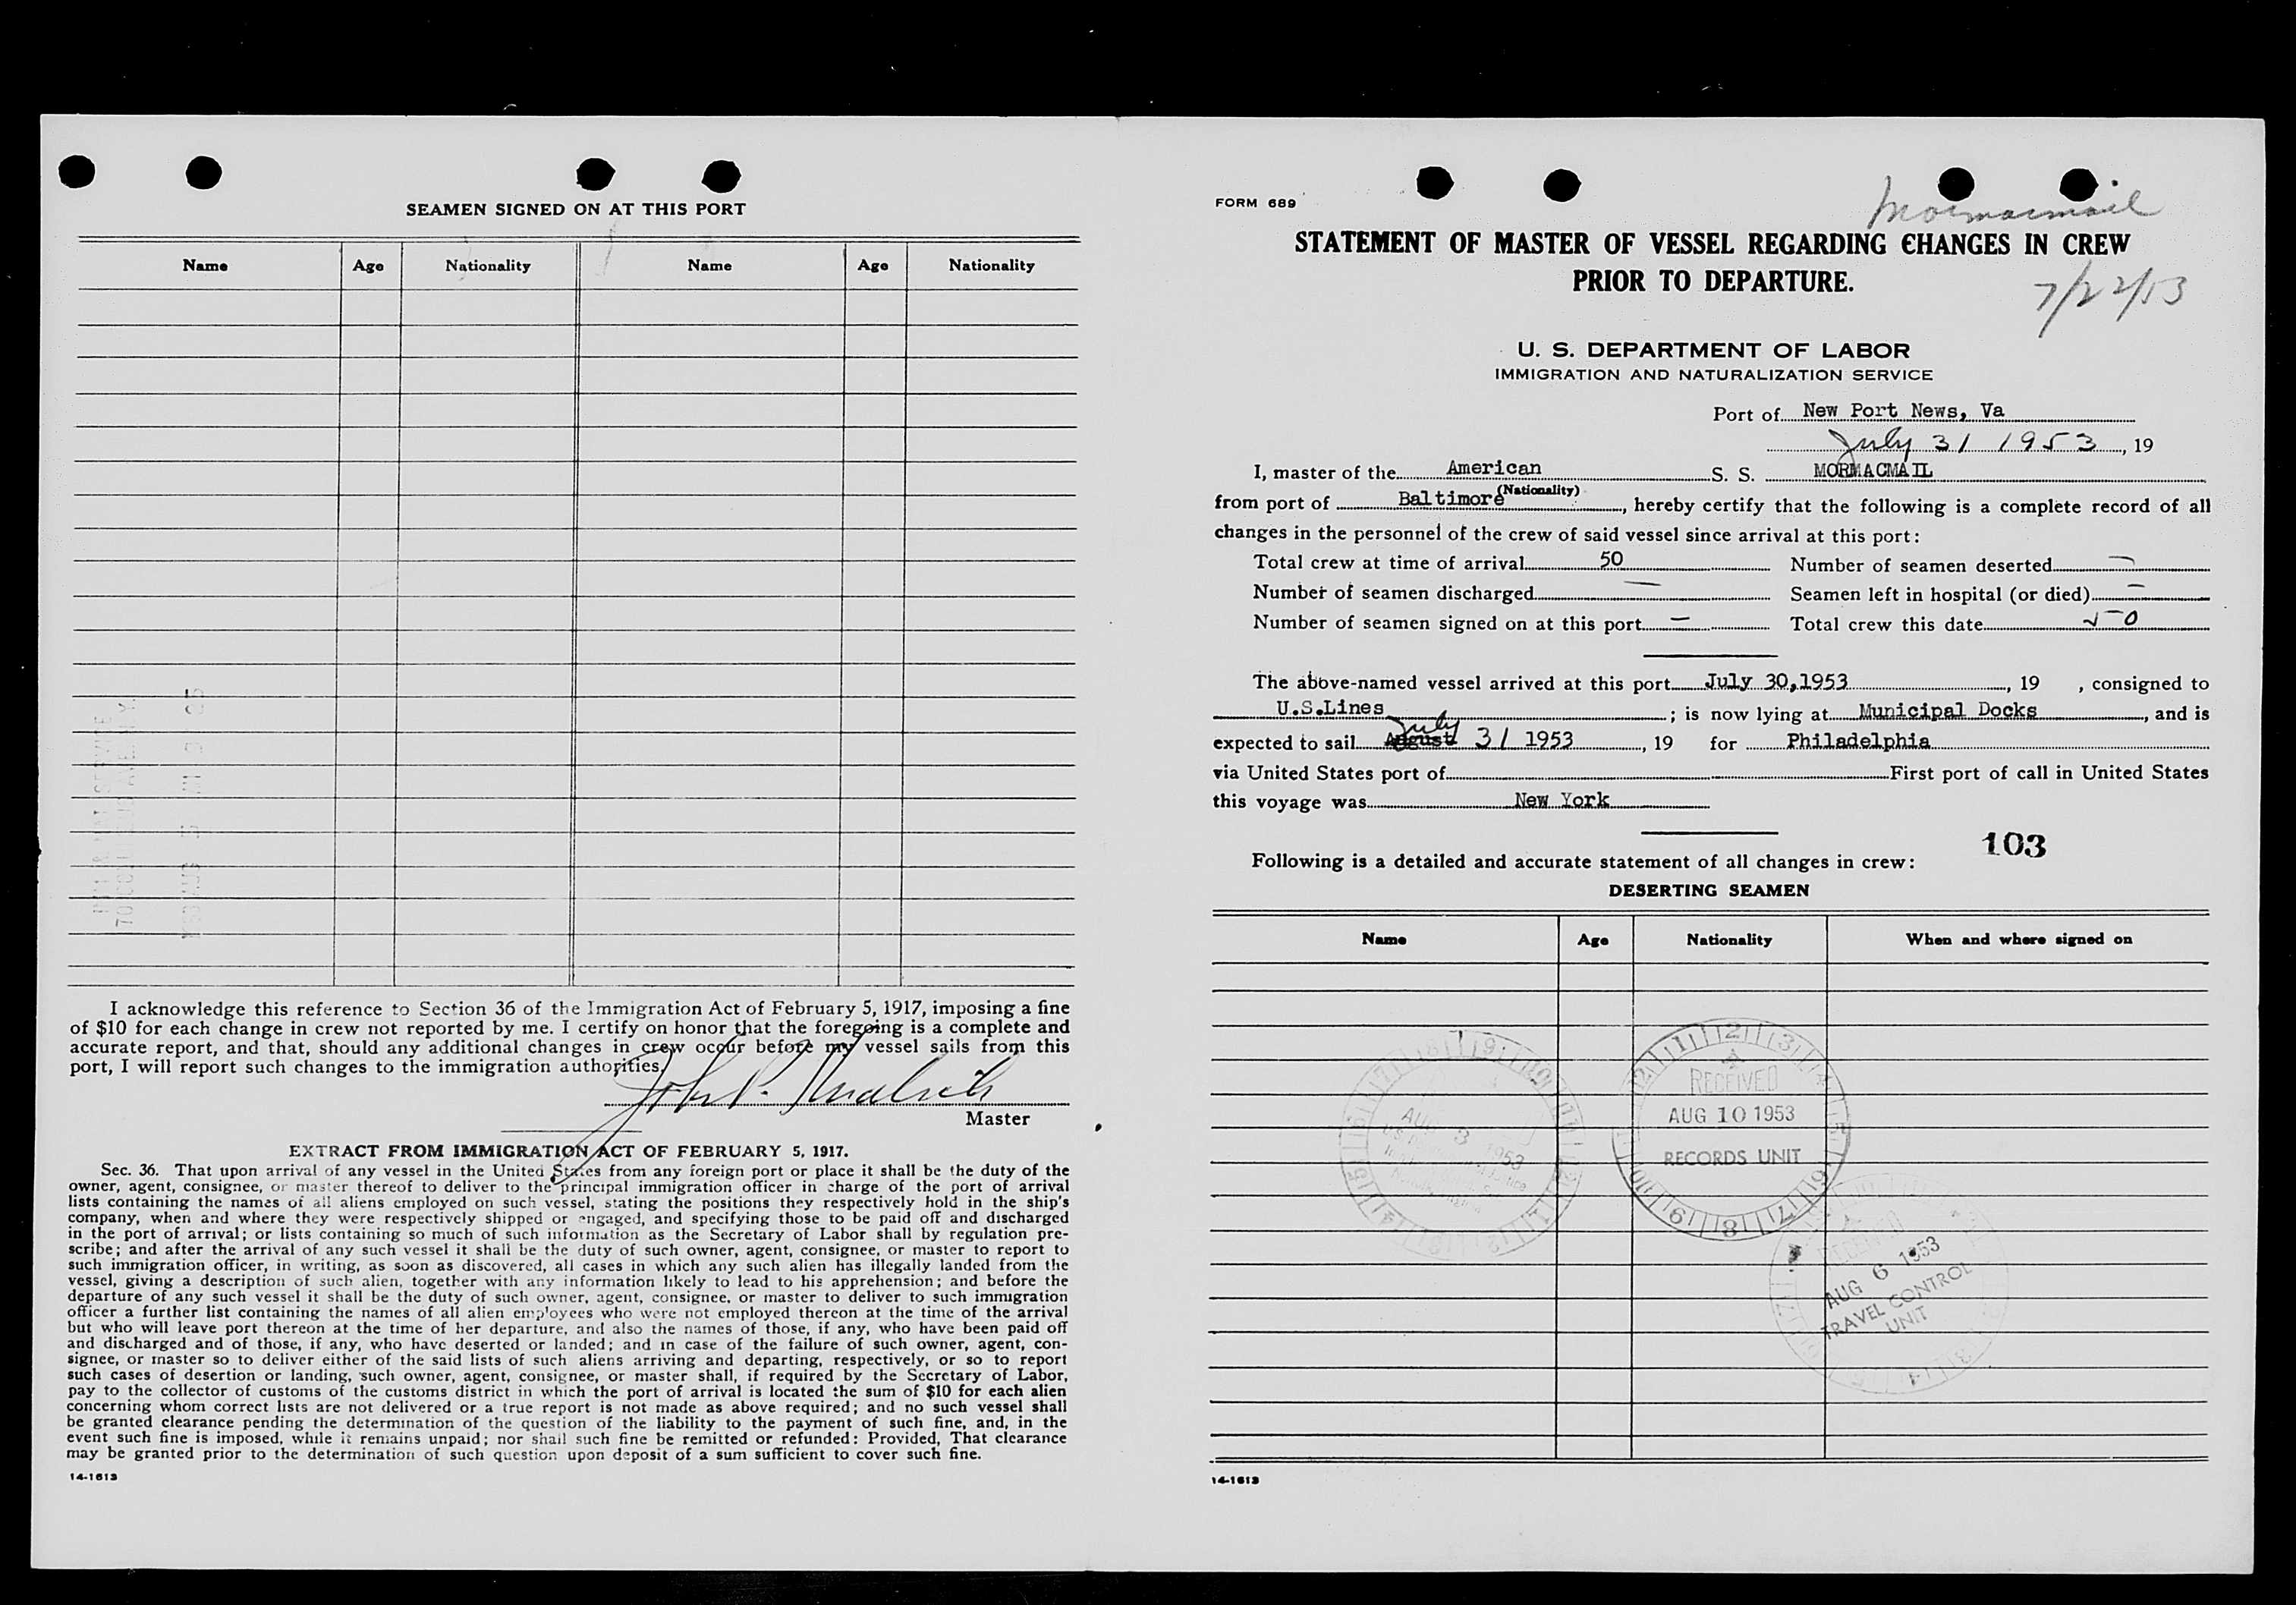 SEAMEN SIGNED ON AT THIS PORT
Name Age Nationality Name Age Nationality
I acknowledge this reference to Section 36 of the Immigration Act of February 5, 1917, imposing a fine
of $10 for each change in crew not reported by me. I certify on honor that the foregoing is a complete and
accurate report, and that, should any additional changes in crew occur before my vessel sails from this
port, I will report such changes to the immigration authorities.
John P.
Master
EXTRACT FROM IMMIGRATION ACT OF FEBRUARY 5, 1917.
Sec. 36. That upon arrival of any vessel in the United States from any foreign port or place it shall be the duty of the
owner, agent, consignee, or master thereof to deliver to the principal immigration officer in charge of the port of arrival
lists containing the names of all aliens employed on such vessel, stating the positions they respectively hold in the ship's
company, when and where they were respectively shipped or engaged, and specifying those to be paid off and discharged
in the port of arrival; or lists containing so much of such information as the Secretary of Labor shall by regulation pre-
scribe; and after the arrival of any such vessel it shall be the duty of such owner, agent, consignee, or master to report to
such immigration officer, in writing, as soon as discovered, all cases in which any such alien has illegally landed from the
vessel, giving a description of such alien, together with any information likely to lead to his apprehension; and before the
departure of any such vessel it shall be the duty of such owner, agent, consignee, or master to deliver to such immigration
officer a further list containing the names of all alien employees who were not employed thereon at the time of the arrival
but who will leave port thereon at the time of her departure, and also the names of those, if any, who have been paid off
and discharged and of those, if any, who have deserted or landed; and in case of the failure of such owner, agent, con-
signee, or master so to deliver either of the said lists of such aliens arriving and departing, respectively, or so to report
such cases of desertion or landing, such owner, agent, consignee, or master shall, if required by the Secretary of Labor,
pay to the collector of customs of the customs district in which the port of arrival is located the sum of $10 for each alien
concerning whom correct lists are not delivered or a true report is not made as above required; and no such vessel shall
be granted clearance pending the determination of the question of the liability to the payment of such fine, and, in the
event such fine is imposed, while it remains unpaid; nor shall such fine be remitted or refunded: Provided, That clearance
may be granted prior to the determination of such question upon deposit of a sum sufficient to cover such fine.
14-1613
FORM 689
Mormacmail
STATEMENT OF MASTER OF VESSEL REGARDING CHANGES IN CREW
PRIOR TO DEPARTURE.
7/22/53
U. S. DEPARTMENT OF LABOR
IMMIGRATION AND NATURALIZATION SERVICE
Port of New Port News, Va
July 31 1953, 19
I, master of the American S. S. MORMACMAIL
(Nationality)
from port of Baltimore, hereby certify that the following is a complete record of all
changes in the personnel of the crew of said vessel since arrival at this port:
Total crew at time of arrival 50 Number of seamen deserted —
Number of seamen discharged — Seamen left in hospital (or died) —
Number of seamen signed on at this port — Total crew this date 50
The above-named vessel arrived at this port July 30,1953, 19 , consigned to
U.S.Lines ; is now lying at Municipal Docks, and is
expected to sail August July 31 1953, 19 for Philadelphia
via United States port of First port of call in United States
this voyage was New York
103
Following is a detailed and accurate statement of all changes in crew:
DESERTING SEAMEN
Name Age Nationality When and where signed on
RECEIVED
AUG 10 1953
RECORDS UNIT
AUG 3 1953
RECEIVED
AUG 6 1953
TRAVEL CONTROL
UNIT
14-1613